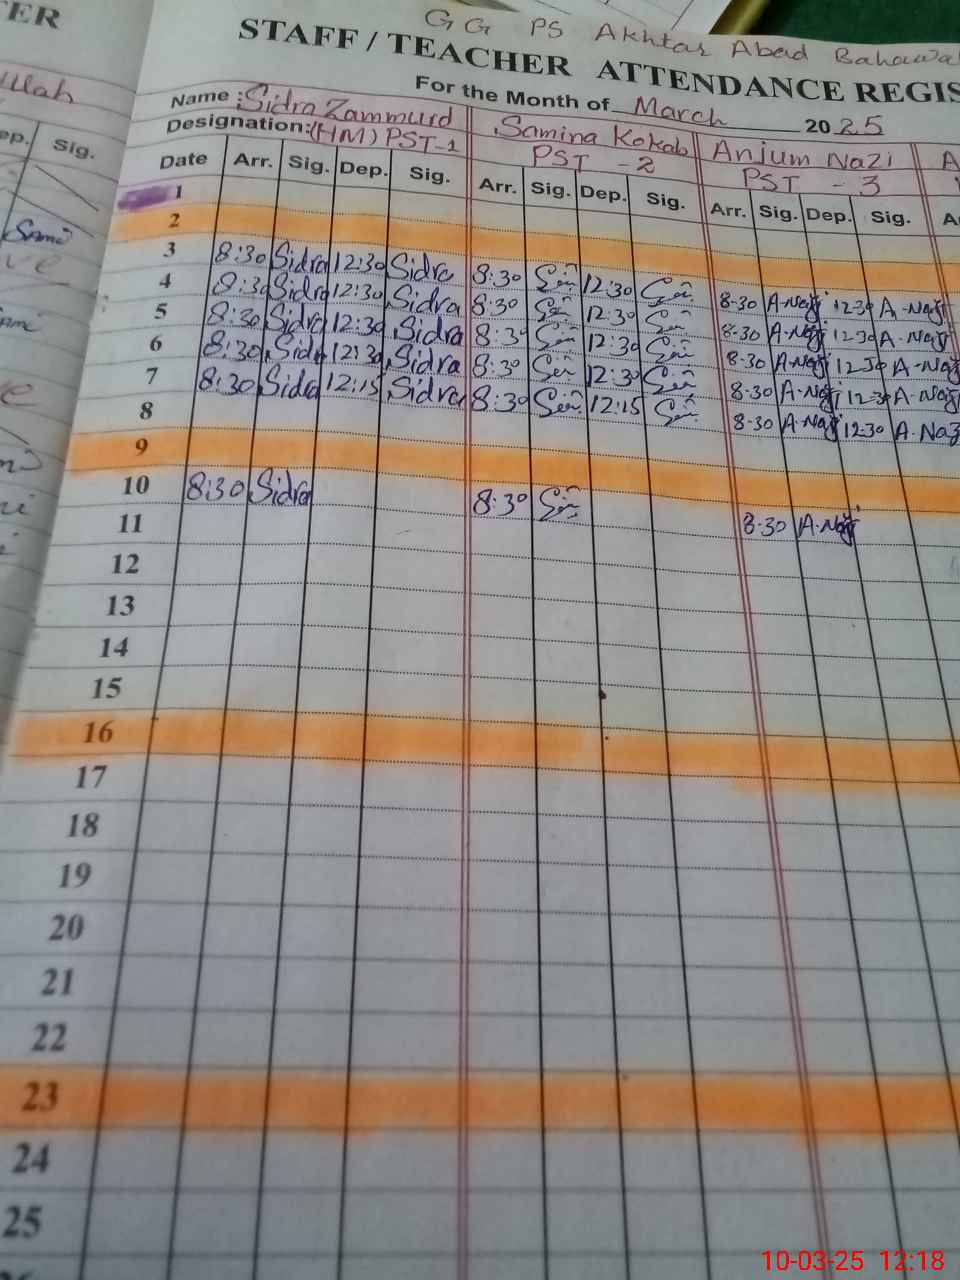 GG PS Akhtar Abad
STAFF / TEACHER ATTENDANCE
For the Month of March 2025
Name : Sidra Zammurd Samina Kokab Anjum Nazi
Designation: (HM) PST-1 PST - 2 PST - 3
Date Arr. Sig. Dep. Sig. Arr. Sig. Dep. Sig. Arr. Sig. Dep. Sig.
1
2
3 8:30 Sidra 12:30 Sidra 8:30 12:30 8-30 A-Nazi 12-30 A-Nazi
4 8:30 Sidra 12:30 Sidra 8:30 12:30 8-30 A-Nazi 12-30 A-Nazi
5 8:30 Sidra 12:30 Sidra 8:30 12:30 8-30 A-Nazi 12-30 A-Nazi
6 8:30 Sidra 12:30 Sidra 8:30 12:30 8-30 A-Nazi 12-30 A-Nazi
7 8:30 Sidra 12:15 Sidra 8:30 12:15 8-30 A-Nazi 12-30 A-Nazi
8
9
10 8:30 Sidra 8:30 8-30 A-Nazi
11
12
13
14
15
16
17
18
19
20
21
22
23
24
25
10-03-25 12:18